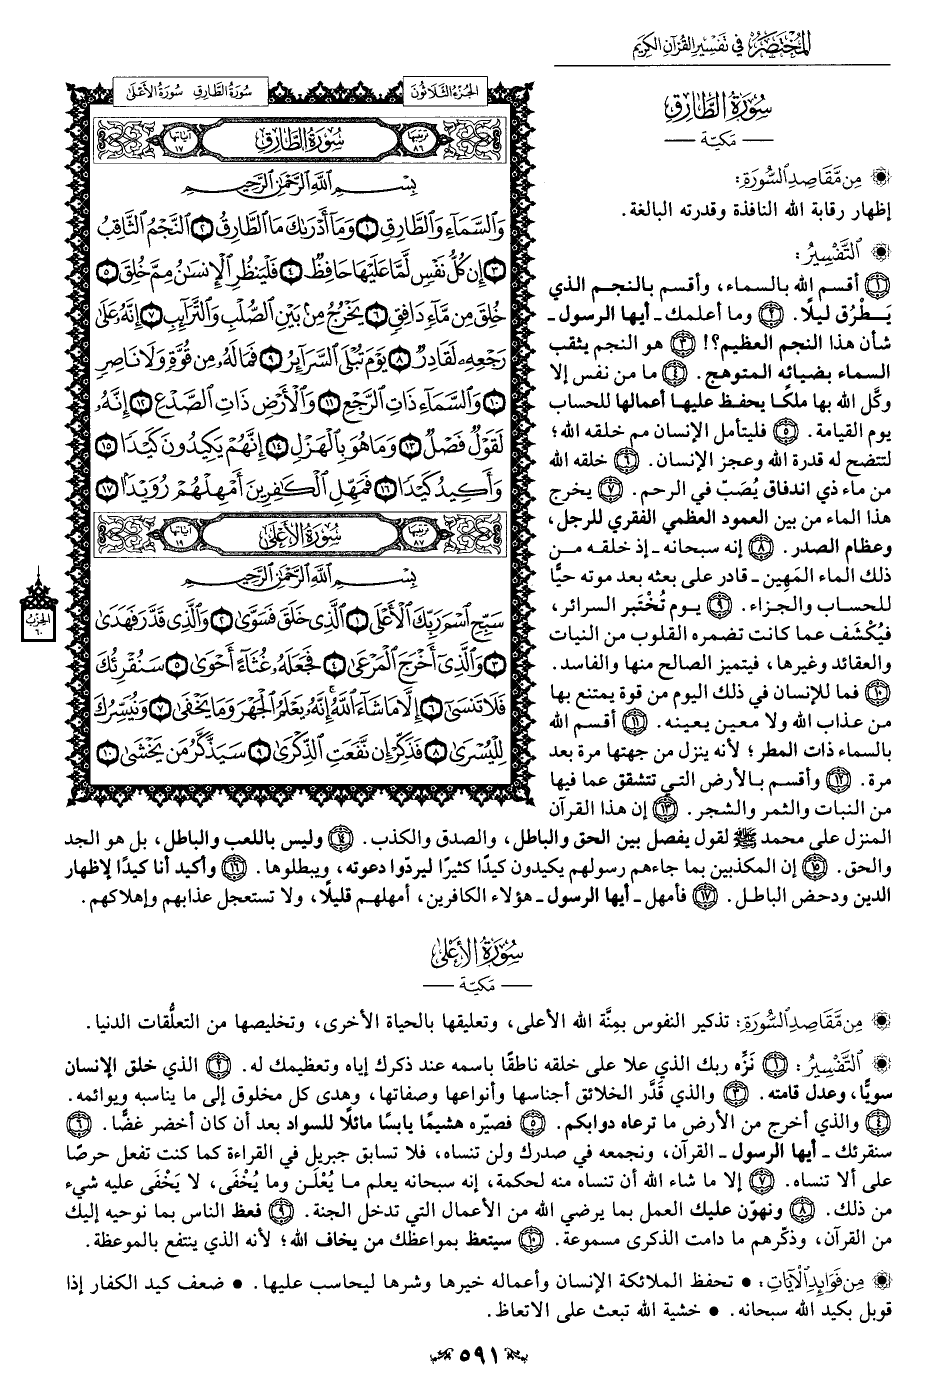 المختصر في تفسير القرآن الكريم
سُورَةُ الطَّارِقِ
— مكيّة —
من مقاصد السورة:
إظهار رقابة الله النافذة وقدرته البالغة.
التفسير:
١ أقسم الله بالسماء، وأقسم بالنجم الذي
يَطْرُق ليلًا. ٢ وما أعلمك ـ أيها الرسول ـ
شأن هذا النجم العظيم؟! ٣ هو النجم يثقب
السماء بضيائه المتوهج. ٤ ما من نفس إلا
وكَّل الله بها ملكًا يحفظ عليها أعمالها للحساب
يوم القيامة. ٥ فليتأمل الإنسان مم خلقه الله؛
لتتضح له قدرة الله وعجز الإنسان. ٦ خلقه الله
من ماء ذي اندفاق يُصَبّ في الرحم. ٧ يخرج
هذا الماء من بين العمود العظمي الفقري للرجل،
وعظام الصدر. ٨ إنه سبحانه ـ إذ خلقه من
ذلك الماء المَهِين ـ قادر على بعثه بعد موته حيًّا
للحساب والجزاء. ٩ يوم تُخْتَبر السرائر،
فيُكْشَف عما كانت تضمره القلوب من النيات
والعقائد وغيرها، فيتميز الصالح منها والفاسد.
١٠ فما للإنسان في ذلك اليوم من قوة يمتنع بها
من عذاب الله ولا معين يعينه. ١١ أقسم الله
بالسماء ذات المطر؛ لأنه ينزل من جهتها مرة بعد
مرة. ١٢ وأقسم بالأرض التي تتشقق عما فيها
من النبات والثمر والشجر. ١٣ إن هذا القرآن
المنزل على محمد ﷺ لقول يفصل بين الحق والباطل، والصدق والكذب. ١٤ وليس باللعب والباطل، بل هو الجد
والحق. ١٥ إن المكذبين بما جاءهم رسولهم يكيدون كيدًا كثيرًا ليردّوا دعوته، ويبطلوها. ١٦ وأكيد أنا كيدًا لإظهار
الدين ودحض الباطل. ١٧ فأمهل ـ أيها الرسول ـ هؤلاء الكافرين، أمهلهم قليلًا، ولا تستعجل عذابهم وإهلاكهم.
الجزء الثلاثون
سورة الطارق سورة الأعلى
ترتيبها ٨٦ سُورَةُ الطَّارِقِ آياتها ١٧
بِسْمِ اللَّهِ الرَّحْمَٰنِ الرَّحِيمِ
وَالسَّمَاءِ وَالطَّارِقِ ١ وَمَا أَدْرَاكَ مَا الطَّارِقُ ٢ النَّجْمُ الثَّاقِبُ
٣ إِن كُلُّ نَفْسٍ لَّمَّا عَلَيْهَا حَافِظٌ ٤ فَلْيَنظُرِ الْإِنسَانُ مِمَّ خُلِقَ ٥
خُلِقَ مِن مَّاءٍ دَافِقٍ ٦ يَخْرُجُ مِنْ بَيْنِ الصُّلْبِ وَالتَّرَائِبِ ٧ إِنَّهُ عَلَىٰ
رَجْعِهِ لَقَادِرٌ ٨ يَوْمَ تُبْلَى السَّرَائِرُ ٩ فَمَا لَهُ مِن قُوَّةٍ وَلَا نَاصِرٍ
١٠ وَالسَّمَاءِ ذَاتِ الرَّجْعِ ١١ وَالْأَرْضِ ذَاتِ الصَّدْعِ ١٢ إِنَّهُ
لَقَوْلٌ فَصْلٌ ١٣ وَمَا هُوَ بِالْهَزْلِ ١٤ إِنَّهُمْ يَكِيدُونَ كَيْدًا ١٥
وَأَكِيدُ كَيْدًا ١٦ فَمَهِّلِ الْكَافِرِينَ أَمْهِلْهُمْ رُوَيْدًا ١٧
ترتيبها ٨٧ سُورَةُ الأَعْلَى آياتها ١٩
بِسْمِ اللَّهِ الرَّحْمَٰنِ الرَّحِيمِ
سَبِّحِ اسْمَ رَبِّكَ الْأَعْلَى ١ الَّذِي خَلَقَ فَسَوَّىٰ ٢ وَالَّذِي قَدَّرَ فَهَدَىٰ
٣ وَالَّذِي أَخْرَجَ الْمَرْعَىٰ ٤ فَجَعَلَهُ غُثَاءً أَحْوَىٰ ٥ سَنُقْرِئُكَ
فَلَا تَنسَىٰ ٦ إِلَّا مَا شَاءَ اللَّهُ إِنَّهُ يَعْلَمُ الْجَهْرَ وَمَا يَخْفَىٰ ٧ وَنُيَسِّرُكَ
لِلْيُسْرَىٰ ٨ فَذَكِّرْ إِن نَّفَعَتِ الذِّكْرَىٰ ٩ سَيَذَّكَّرُ مَن يَخْشَىٰ ١٠
الحزب
٦٠
سُورَةُ الأَعْلَى
— مكيّة —
من مقاصد السورة: تذكير النفوس بمِنَّة الله الأعلى، وتعليقها بالحياة الأخرى، وتخليصها من التعلُّقات الدنيا.
التفسير: ١ نَزِّه ربك الذي علا على خلقه ناطقًا باسمه عند ذكرك إياه وتعظيمك له. ٢ الذي خلق الإنسان
سويًّا، وعدل قامته. ٣ والذي قَدَّر الخلائق أجناسها وأنواعها وصفاتها، وهدى كل مخلوق إلى ما يناسبه ويوائمه.
٤ والذي أخرج من الأرض ما ترعاه دوابكم. ٥ فصيّره هشيمًا يابسًا مائلًا للسواد بعد أن كان أخضر غضًّا. ٦
سنقرئك ـ أيها الرسول ـ القرآن، ونجمعه في صدرك ولن تنساه، فلا تسابق جبريل في القراءة كما كنت تفعل حرصًا
على ألا تنساه. ٧ إلا ما شاء الله أن تنساه منه لحكمة، إنه سبحانه يعلم ما يُعْلَن وما يُخْفَى، لا يَخْفَى عليه شيء
من ذلك. ٨ ونهوّن عليك العمل بما يرضي الله من الأعمال التي تدخل الجنة. ٩ فعظ الناس بما نوحيه إليك
من القرآن، وذكّرهم ما دامت الذكرى مسموعة. ١٠ سيتعظ بمواعظك من يخاف الله؛ لأنه الذي ينتفع بالموعظة.
من فوائد الآيات: • تحفظ الملائكة الإنسان وأعماله خيرها وشرها ليحاسب عليها. • ضعف كيد الكفار إذا
قوبل بكيد الله سبحانه. • خشية الله تبعث على الاتعاظ.
٥٩١